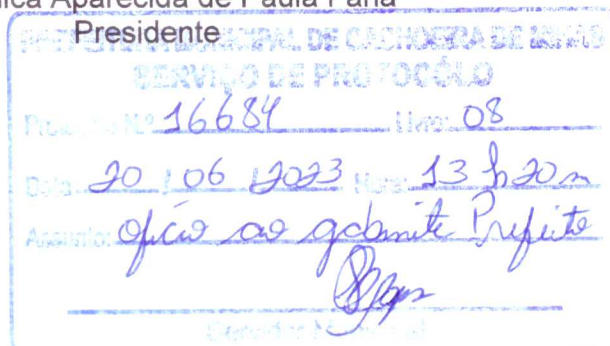 nica Aparecida de Paula Faria
Presidente
PREFEITURA MUNICIPAL DE CACHOEIRA DE MINAS
SERVIÇO DE PROTOCÓLO
Protocolo N.º 16684 Livro: 08
Data: 20 / 06 / 2023 Hora: 13 h 20 m
Assunto: ofício ao gabinete Prefeito
Servidor Municipal